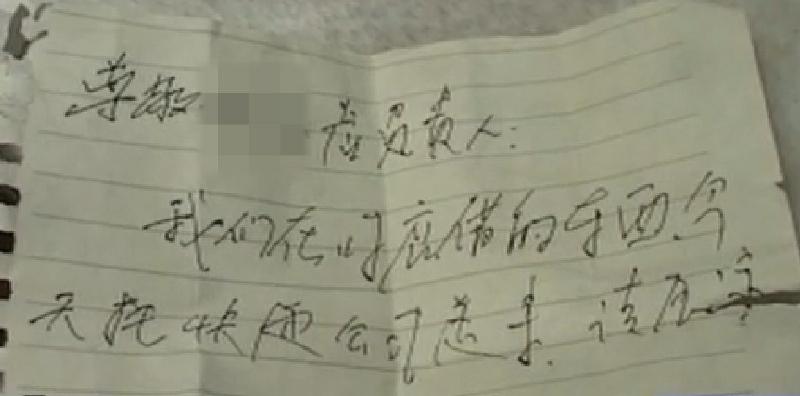 尊敬 店负责人:
我们在你店借的东西,今
天托快递公司送来.请原谅